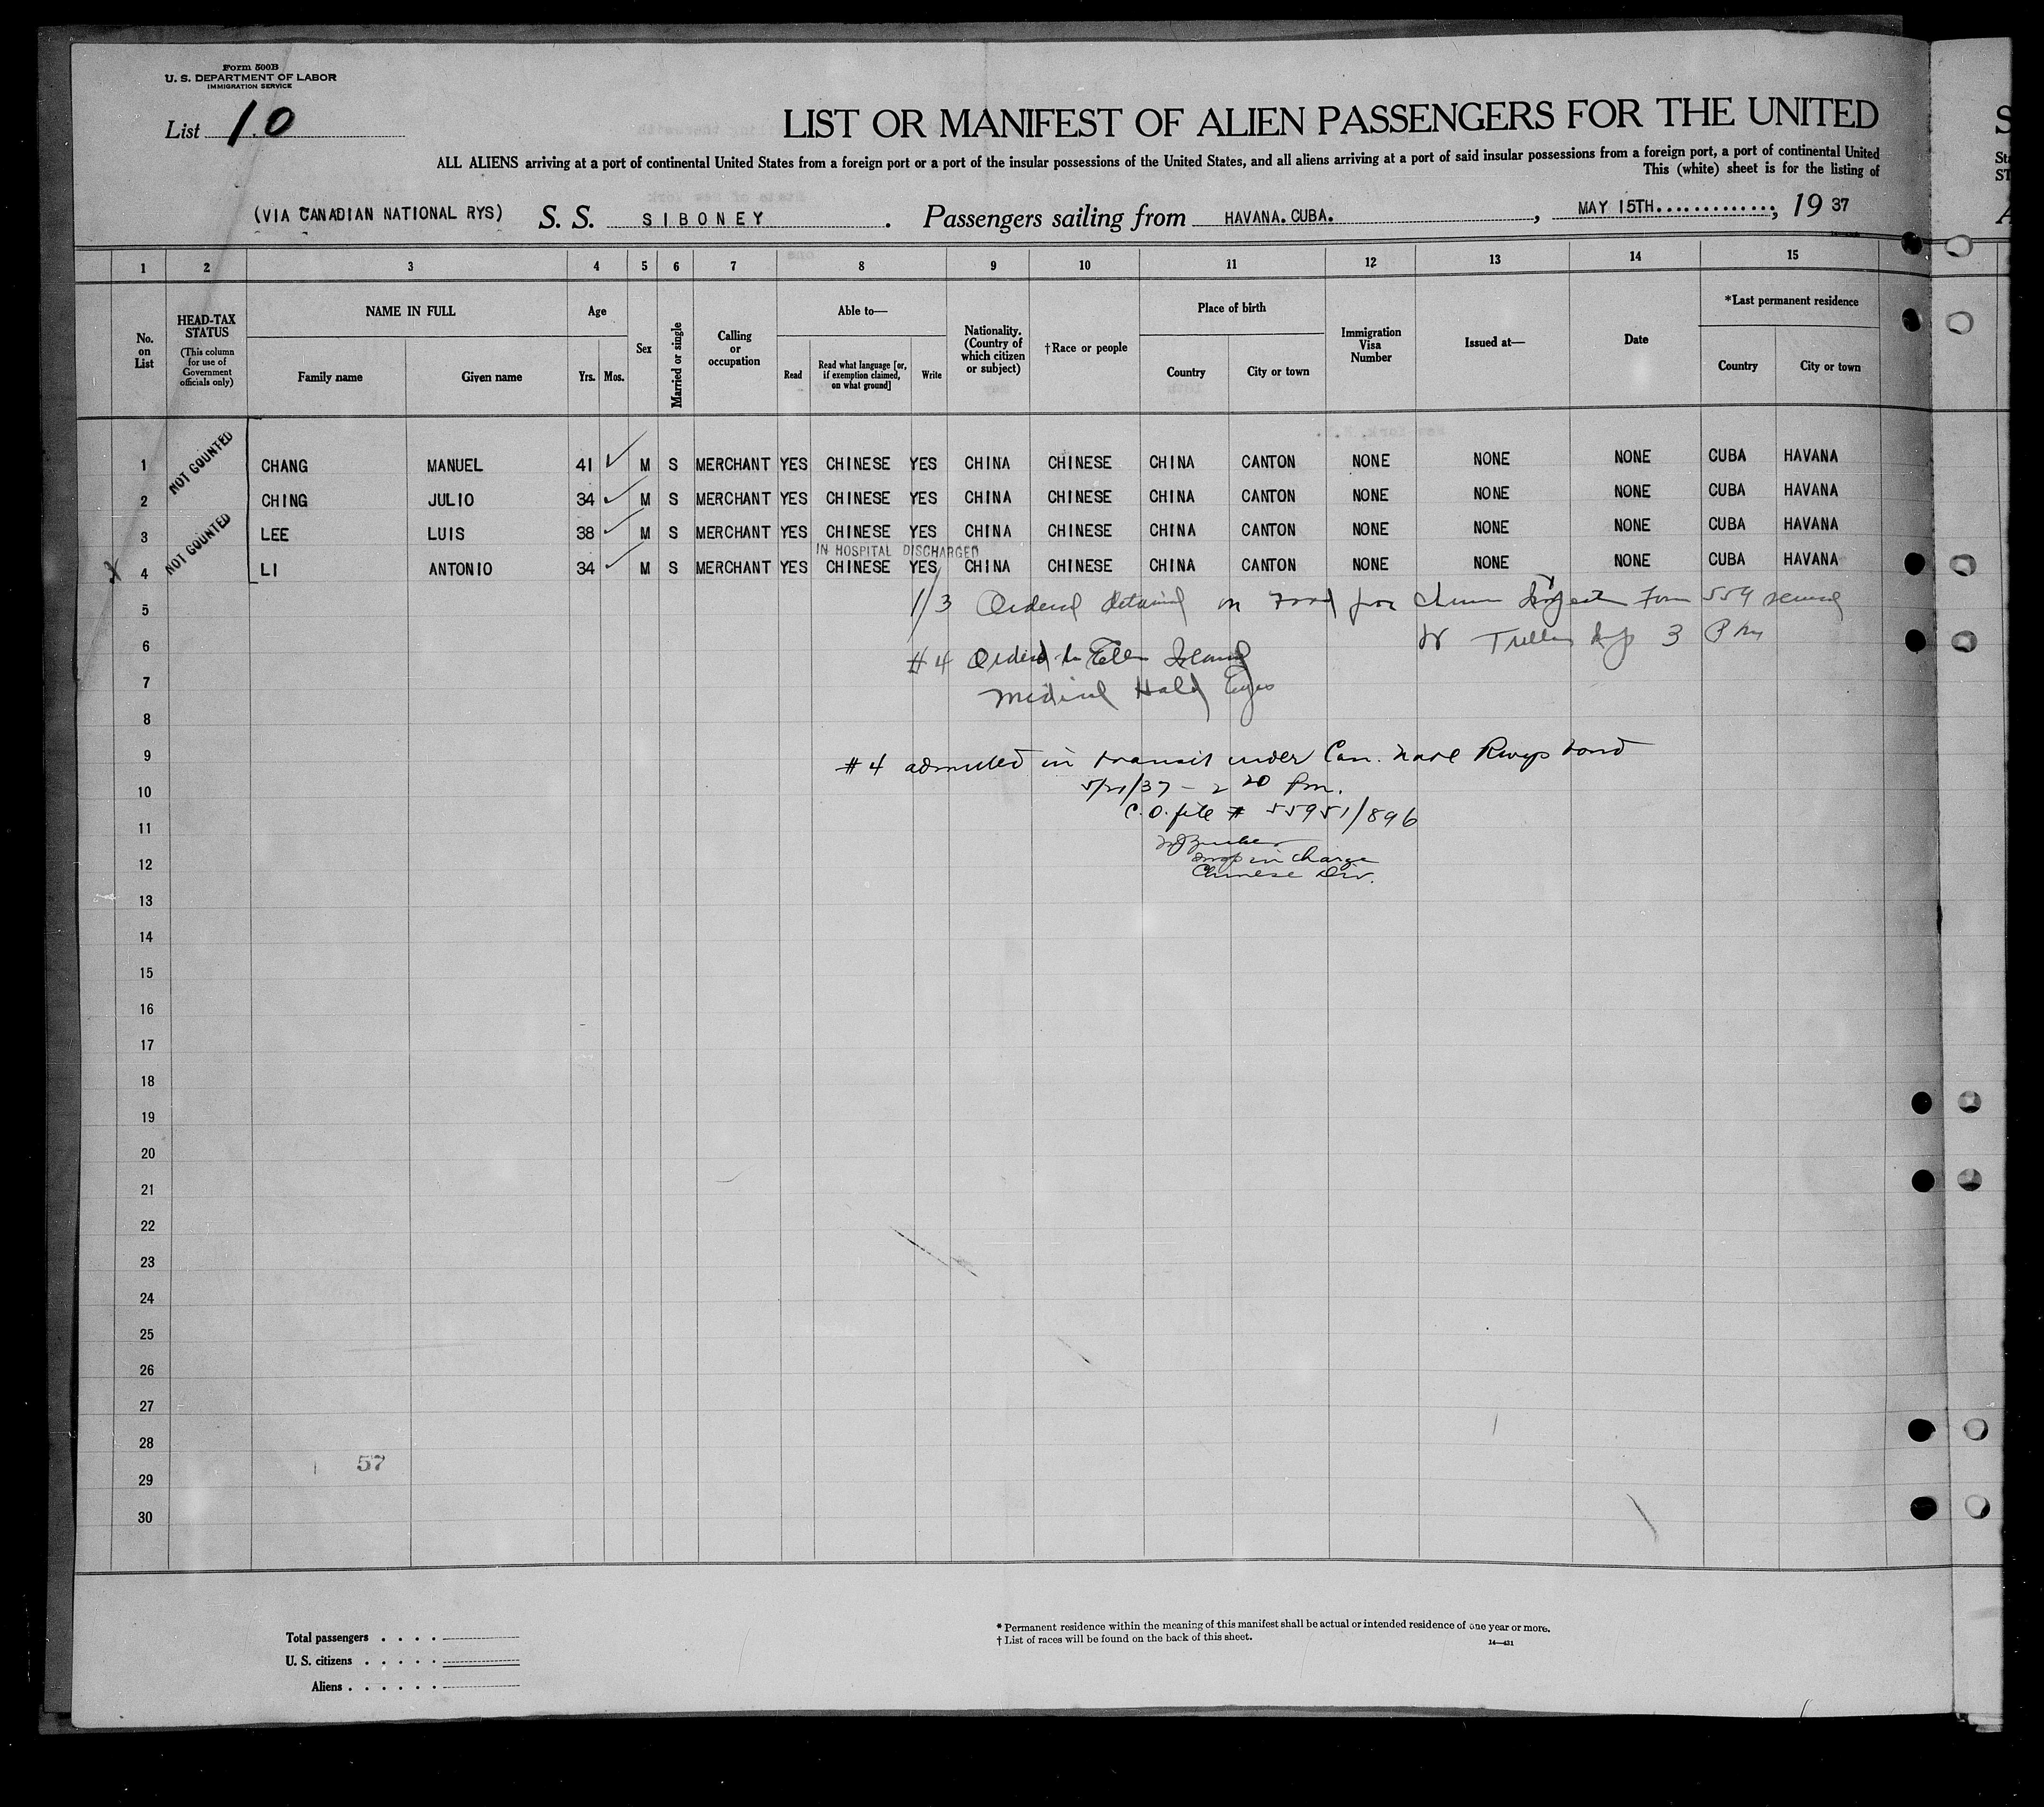 Form 500B
U. S. DEPARTMENT OF LABOR
IMMIGRATION SERVICE
List 10
LIST OR MANIFEST OF ALIEN PASSENGERS FOR THE UNITED
ALL ALIENS arriving at a port of continental United States from a foreign port or a port of the insular possessions of the United States, and all aliens arriving at a port of said insular possessions from a foreign port, a port of continental United
This (white) sheet is for the listing of
(VIA CANADIAN NATIONAL RYS) S. S. SIBONEY. Passengers sailing from HAVANA. CUBA. , MAY 15TH............., 19 37
1 2 3 4 5 6 7 8 9 10 11 12 13 14 15
No. on List
HEAD-TAX STATUS
(This column for use of Government officials only)
NAME IN FULL
Family name Given name
Age
Yrs. Mos.
Sex
Married or single
Calling or occupation
Able to—
Read Read what language [or, if exemption claimed, on what ground] Write
Nationality. (Country of which citizen or subject)
†Race or people
Place of birth
Country City or town
Immigration Visa Number
Issued at—
Date
*Last permanent residence
Country City or town
NOT COUNTED
1 CHANG MANUEL 41 M S MERCHANT YES CHINESE YES CHINA CHINESE CHINA CANTON NONE NONE NONE CUBA HAVANA
2 CHING JULIO 34 M S MERCHANT YES CHINESE YES CHINA CHINESE CHINA CANTON NONE NONE NONE CUBA HAVANA
NOT COUNTED
3 LEE LUIS 38 M S MERCHANT YES CHINESE YES CHINA CHINESE CHINA CANTON NONE NONE NONE CUBA HAVANA
IN HOSPITAL DISCHARGED
X 4 LI ANTONIO 34 M S MERCHANT YES CHINESE YES CHINA CHINESE CHINA CANTON NONE NONE NONE CUBA HAVANA
5 1/3 Ordered detained on 559
6 3 PM
#4 Ordered to Ellis Island
7 Medical Hold Eyes
8
9 #4 admitted in transit under Can. Natl Rwys bond
10 5/21/37 - 2 20 pm.
C. O. file # 55951/896
11
12 Insp in charge
Chinese Div.
13
14
15
16
17
18
19
20
21
22
23
24
25
26
27
28
57
29
30
Total passengers . . . .
U. S. citizens . . . . .
Aliens . . . . . .
* Permanent residence within the meaning of this manifest shall be actual or intended residence of one year or more.
† List of races will be found on the back of this sheet.
14—431